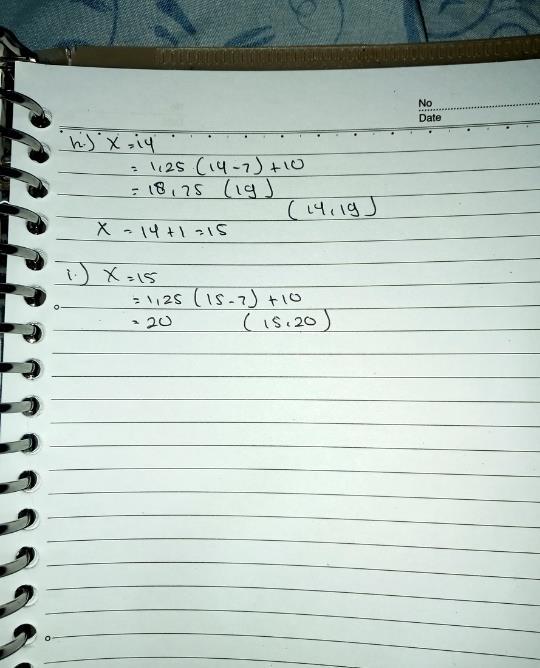 No
Date
h.) x = 14
= 1,25 (14-7) + 10
= 18,75 (19)
(14,19)
x = 14 + 1 = 15
i.) x = 15
= 1,25 (15-7) + 10
= 20 (15,20)